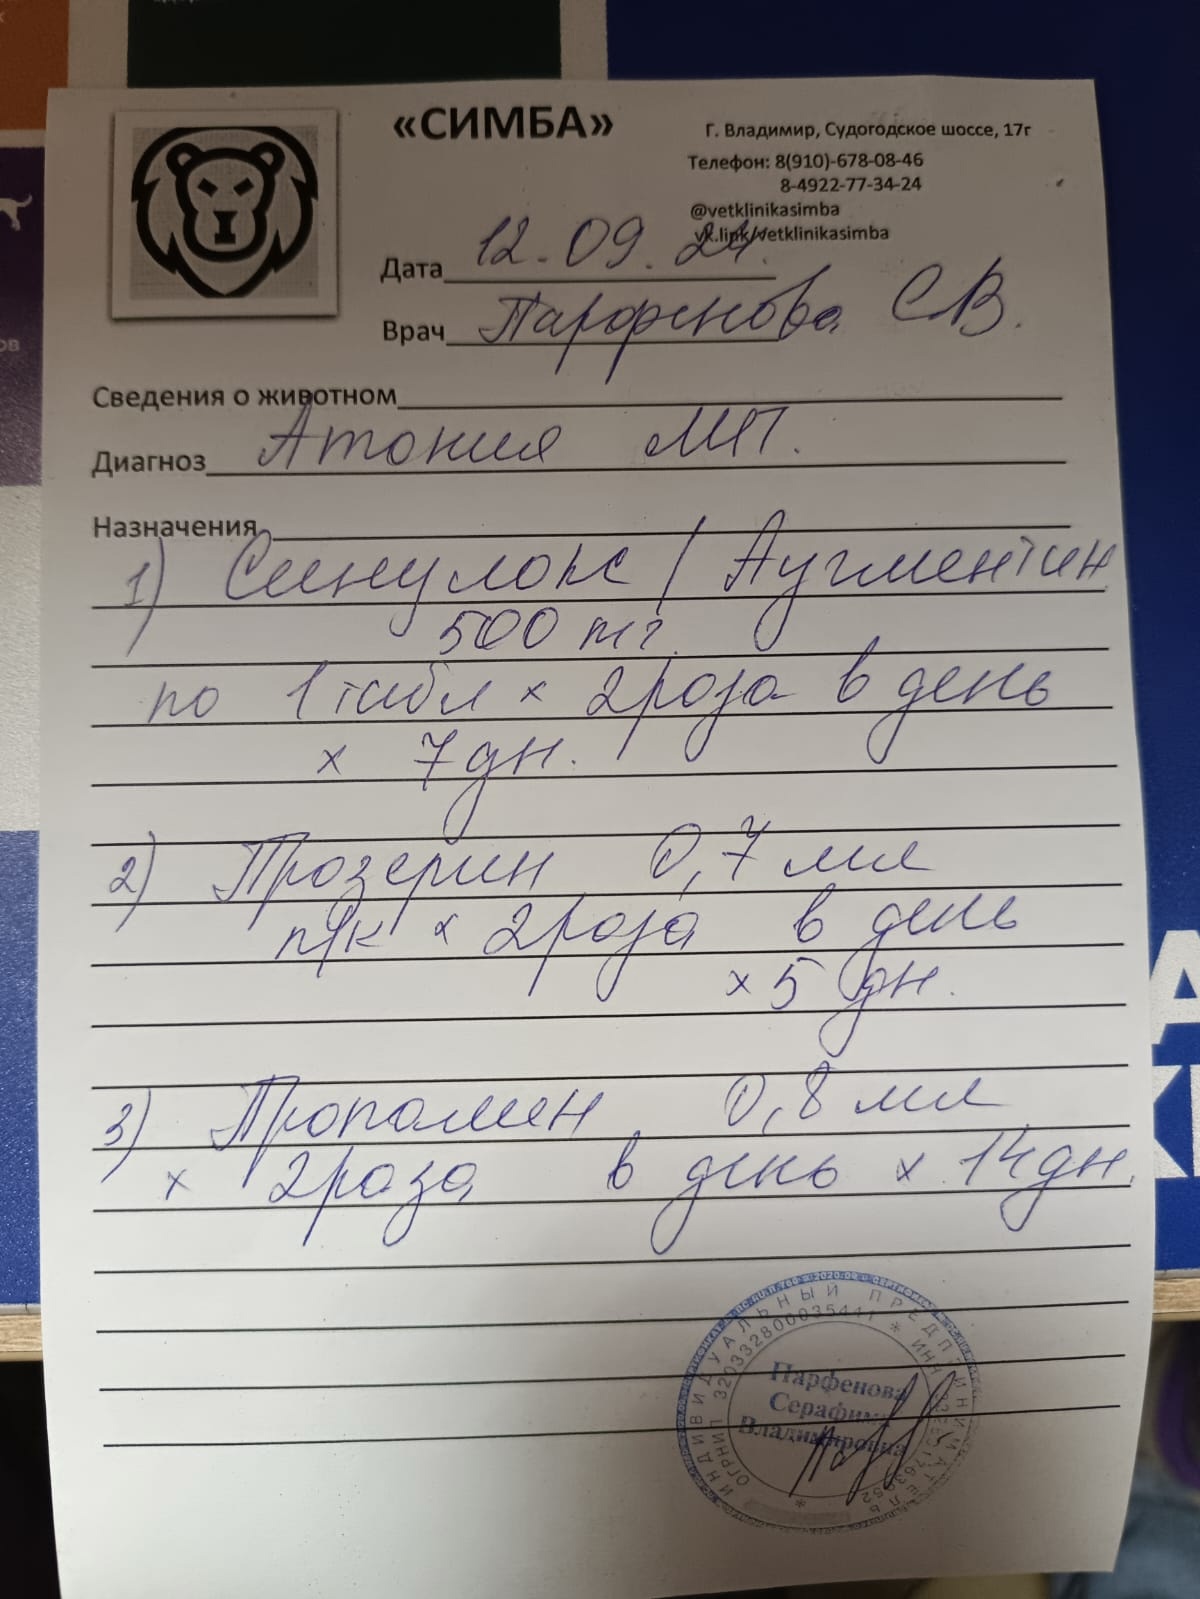 «СИМБА»
Г. Владимир, Судогодское шоссе, 17г
Телефон: 8(910)-678-08-46
8-4922-77-34-24
@vetklinikasimba
vk.link/vetklinikasimba
Дата 12.09.24.
Врач Парфенова СВ.
Сведения о животном
Диагноз Атония МП.
Назначения
1) Синулокс / Аугментин
500 мг.
по 1 табл х 2 раза в день
х 7 дн.
2) Прозерин 0,7 мл
п/к х 2 раза в день
х 5 дн.
3) Пропалин 0,8 мл
х 2 раза в день х 14 дн.
ИНДИВИДУАЛЬНЫЙ ПРЕДПРИНИМАТЕЛЬ
ОГРНИП 320332800035441 * ИНН
Парфенова
Серафима
Владимировна